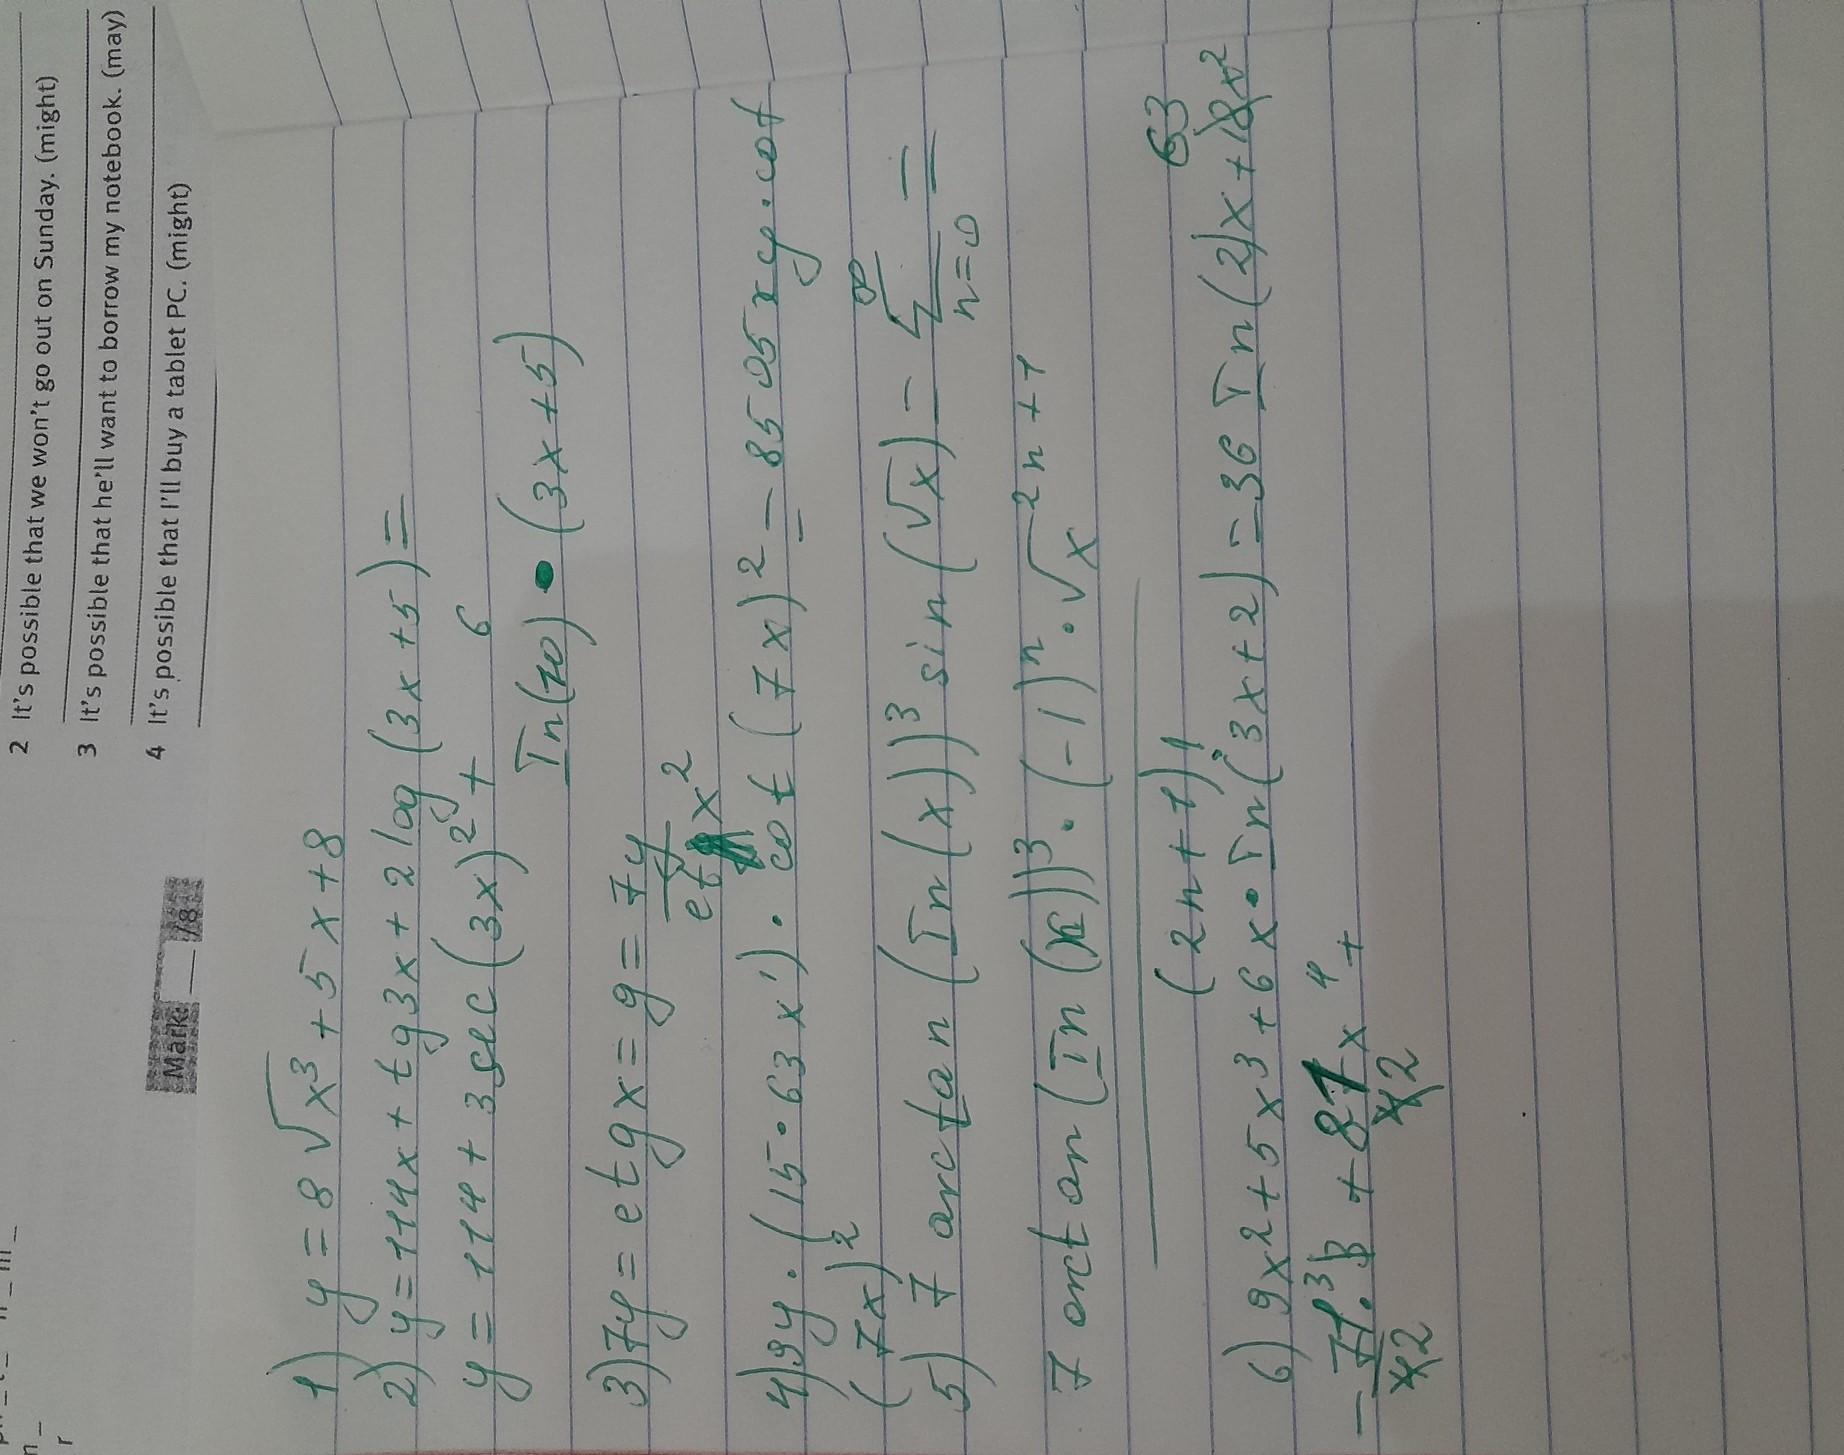 2 It's possible that we won't go out on Sunday. (might)
3 It's possible that he'll want to borrow my notebook. (may)
4 It's possible that I'll buy a tablet PC. (might)
Mark: /8
1) y = 8 √x³ + 5x + 8
2) y = 114x + tg3x + 2log(3x+5) =
y = 114 + 3sec(3x)² + 6
In(10) • (3x+5)
3) 7y = etgx = y = 7y
etgx²
4) 9y · (15 · 63x') · cot(7x)² = 8505xy · cot
(7x)²
5) 7 arctan(In(x))³ sin(√x) = ∞
Σ
n=0
7 arctan(In(x))³ · (-1)ⁿ · √x 2n+1
(2n+1)!
6) 9x2 + 5x3 + 6x • In(3x+2) = 36 In(2)x + 63
- 71.3³ + 87x⁴ +
x2 x2